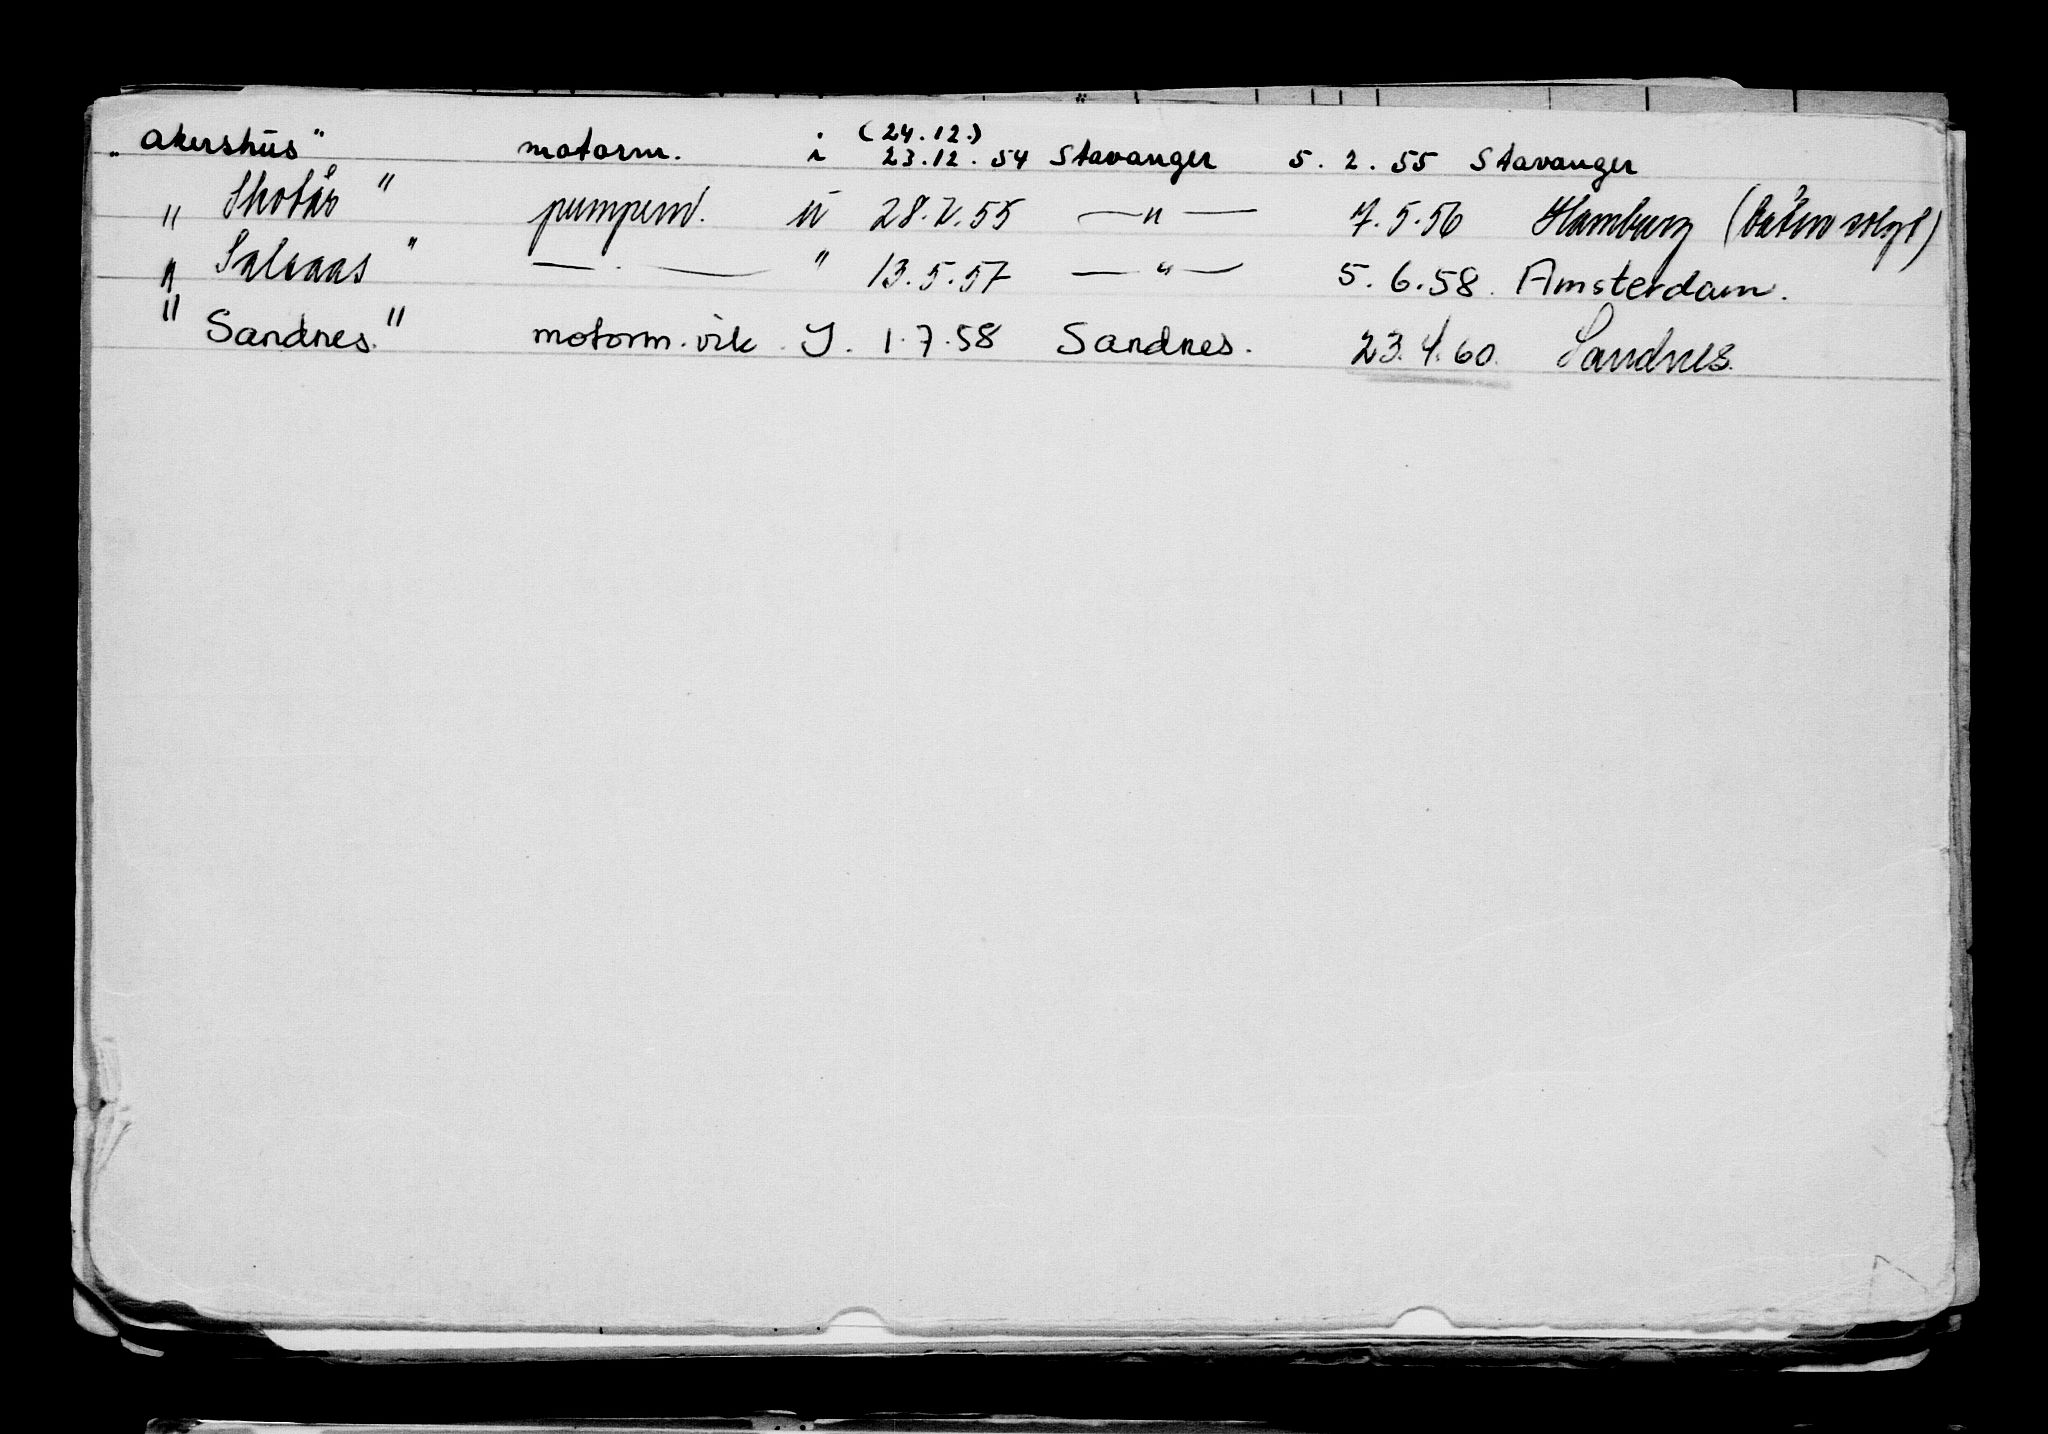 (24.12.)
„ Akershus" motorm. i 23.12.54 Stavanger 5.2.55 Stavanger
" Skotås" pumpem. u 28.2.55 —"— 7.5.56 Hamburg (båten solgt)
" Salsaas" —.— " 13.5.57 —"— 5.6.58. Amsterdam.
" Sandnes." motorm.vik. J. 1.7.58 Sandnes. 23.4.60. Sandnes.